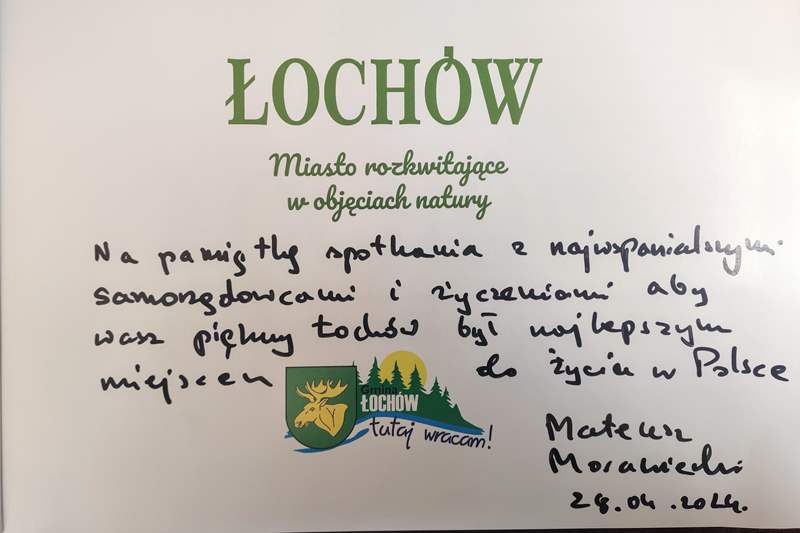 ŁOCHÓW
Miasto rozkwitające
w objęciach natury
Na pamiątkę spotkania z najwspanialszymi
samorządowcami i życzeniami aby
wasz piękny Łochów był najlepszym
miejscem do życia w Polsce
Gmina
ŁOCHÓW
tutaj wracam!
Mateusz
Morawiecki
28.04.2024.